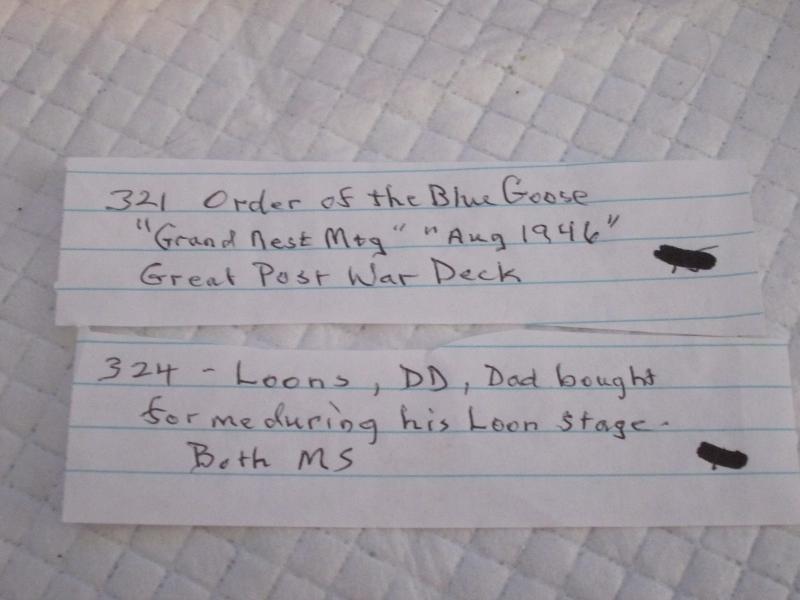 321 Order of the Blue Goose
"Grand Nest Mtg" "Aug 1946"
Great Post War Deck
324 - Loons, DD, Dad bought
for me during his Loon stage.
Both MS